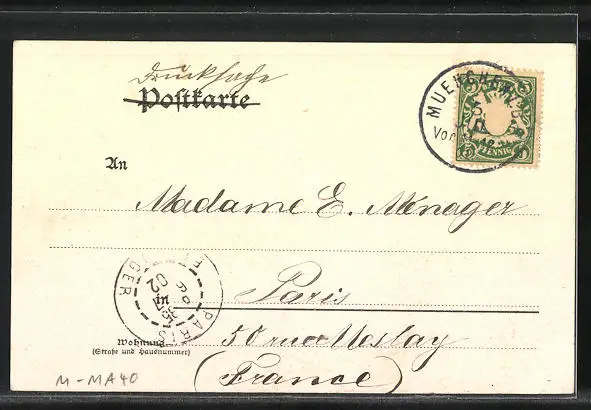 Drucksache
Postkarte
MUENCHEN
Vor
5 PFENNIG 5
An
Madame E. Ménager
Paris
in
PARIS
ETRANGER
02
Wohnung
(Straße und Hausnummer)
50 rue Meslay
(France)
M-MA40